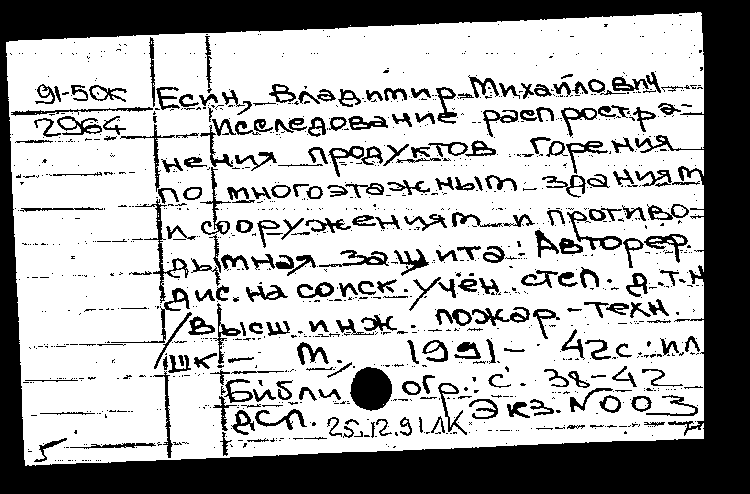 91-50к Есин, Владимир Михайлович
2964 Исследование распростра-
нения продуктов горения
по многоэтажным зданиям
и сооружениям и противо-
дымная защита: Автореф.
дис. на соиск. учен. степ. д.т.н
/Высш. инж. пожар.-техн.
шк. – М. 1991 – 42с.: ил
Библиогр.: с. 38-42
ДСП. Экз. N 003
25.12.91 ЛК